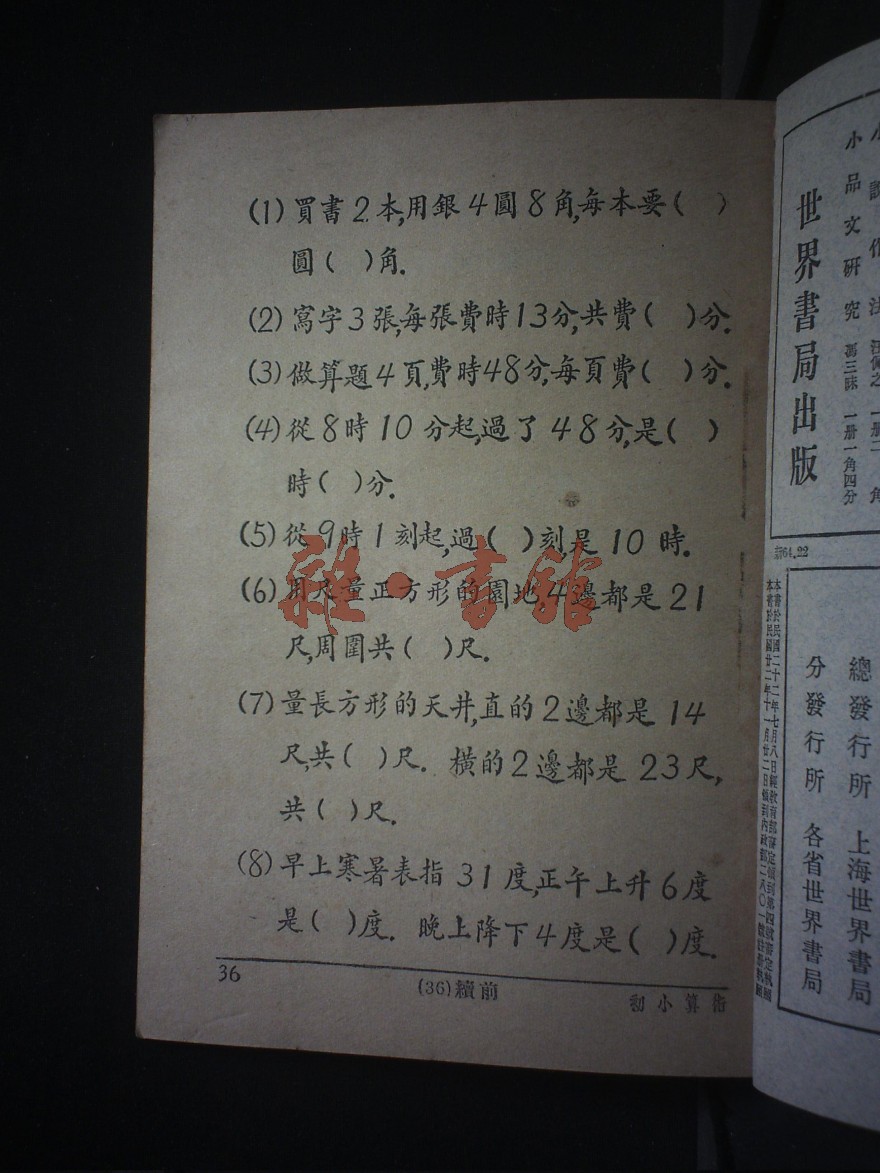 (1) 買書2本,用銀4圓8角,每本要( )
圓( )角.
(2) 寫字3張,每張費時13分,共費( )分.
(3) 做算題4頁,費時48分,每頁費( )分.
(4) 從8時10分起,過了48分,是( )
時( )分.
(5) 從9時1刻起,過( )刻,是10時.
(6) 用尺量正方形的園地4邊都是21
尺,周圍共( )尺.
(7) 量長方形的天井,直的2邊都是14
尺,共( )尺. 橫的2邊都是23尺,
共( )尺.
(8) 早上寒暑表指31度,正午上升6度
是( )度. 晚上降下4度是( )度.
36
(36)續前
初小算術
雜·書館
小說作法 汪佩之 一册二角
小品文研究 馮三昧 一册一角四分
世界書局出版
64.22
本書於民國二十二年七月八日經教育部審定領到第四號審定執照
總發行所 上海世界書局
分發行所 各省世界書局